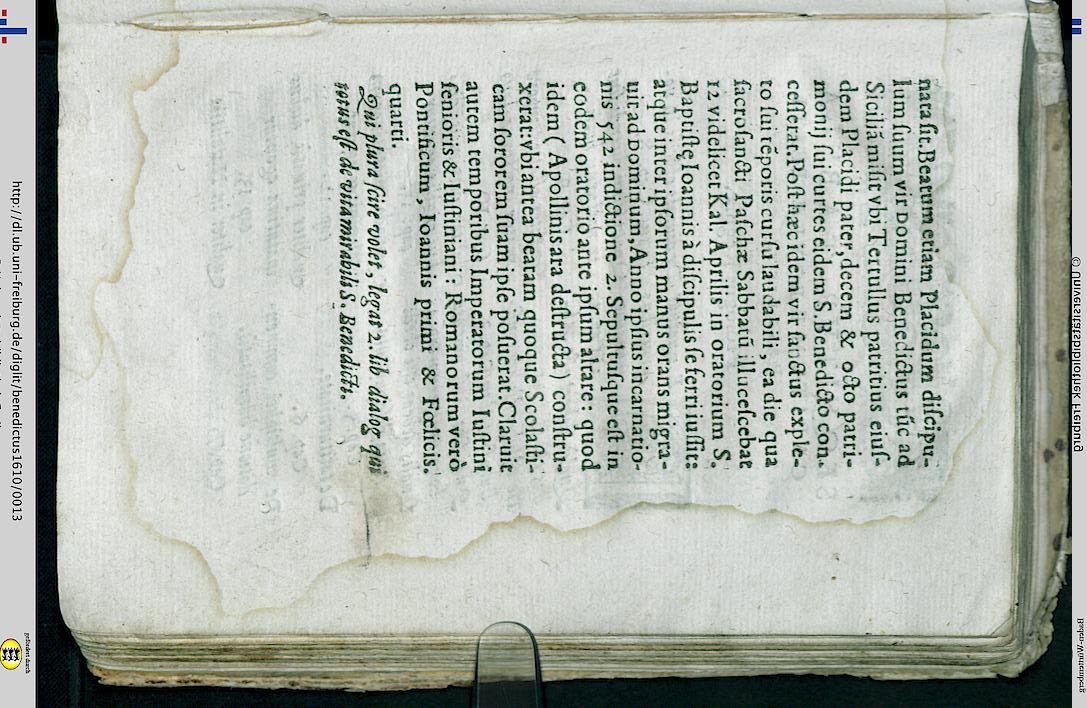 nata sit. Beatum etiam Placidum discipu-
lum suum vir Domini Benedictus tũc ad
Siciliã misit vbi Tertullus patritius eius-
dem Placidi pater, decem & octo patri-
monij sui curtes eidem S. Benedicto con-
cesserat. Post hæc idem vir sanctus exple-
to sui tẽporis cursu laudabili, ea die qua
sacrosancti Paschæ Sabbatũ illucescebat
12 videlicet Kal. Aprilis in oratorium S.
Baptistę Ioannis à discipulis se ferri iussit:
atque inter ipsorum manus orans migra-
uit ad Dominum, Anno ipsius incarnatio-
nis 542 indictione 2. Sepultusque est in
eodem oratorio ante ipsum altare: quod
idem ( Apollinis ara destructa) constru-
xerat: vbi antea beatam quoque Scolasti-
cam sororem suam ipse posuerat. Claruit
autem temporibus Imperatorum Iustini
senioris & Iustiniani: Romanorum verò
Pontificum, Ioannis primi & Fœlicis.
quarti.
Qui plura scire volet, legat 2. lib dialog qui
totus est de vita mirabilis S. Benedicti.
http://dl.ub.uni-freiburg.de/diglit/benedictus1610/0013
© Universitätsbibliothek Freiburg
gefördert durch
Baden-Württemberg